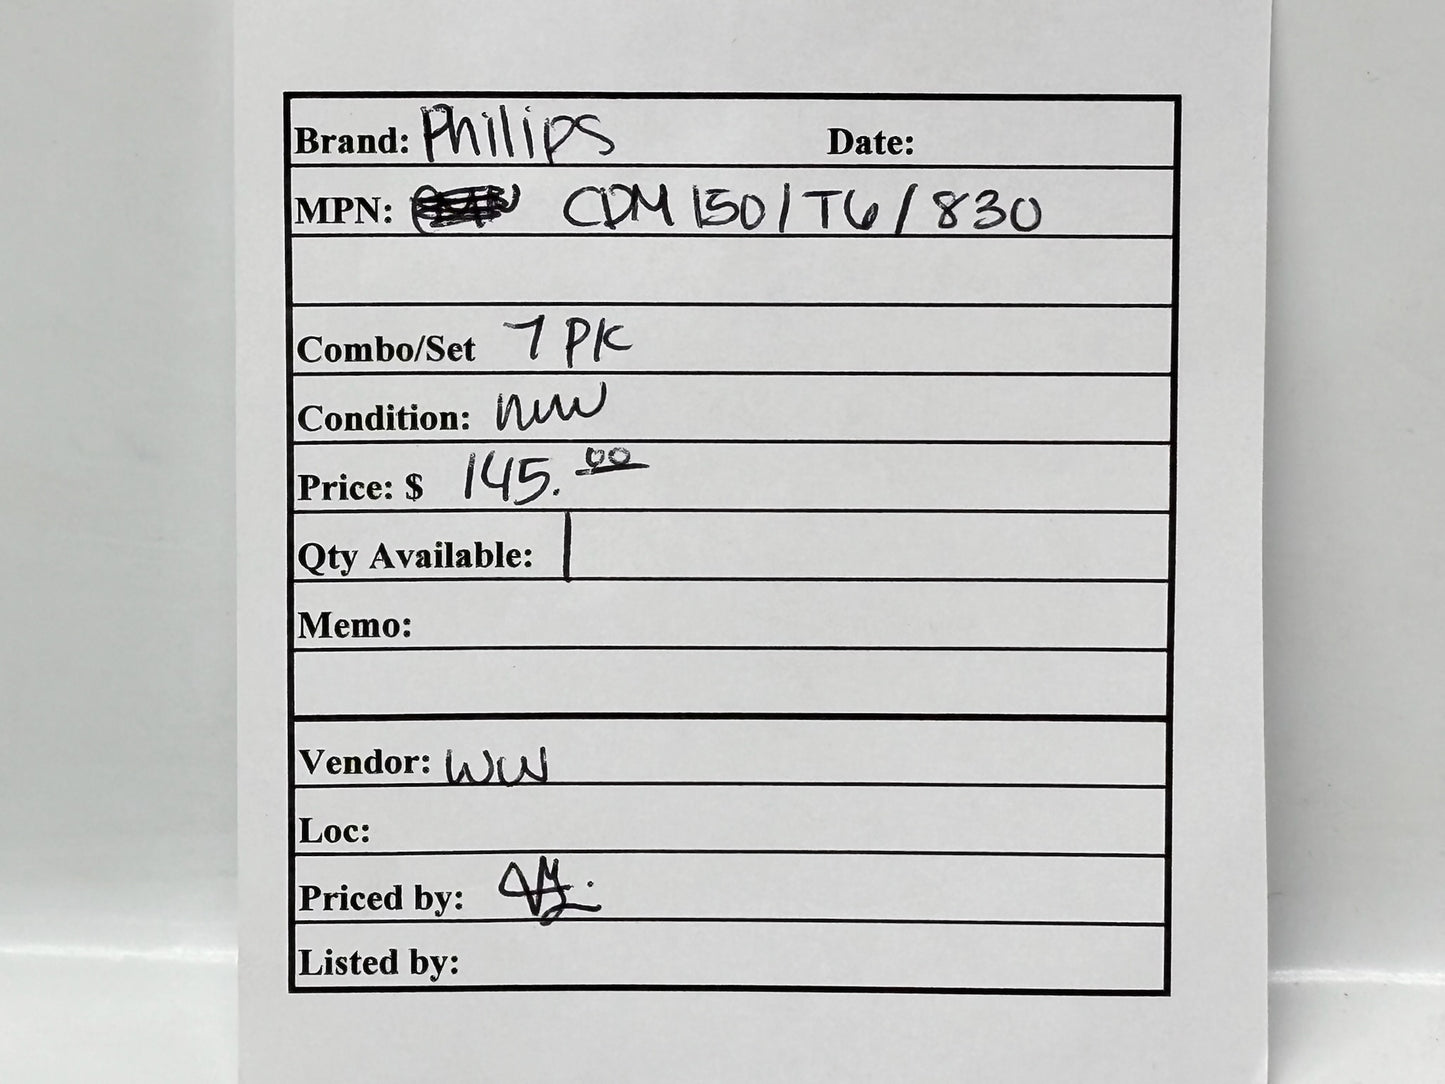 Brand: Philips Date:
MPN: CDM 150/T6/830
Combo/Set 7 PK
Condition: new
Price: $ 145.00
Qty Available: 1
Memo:
Vendor: WW
Loc:
Priced by:
Listed by: